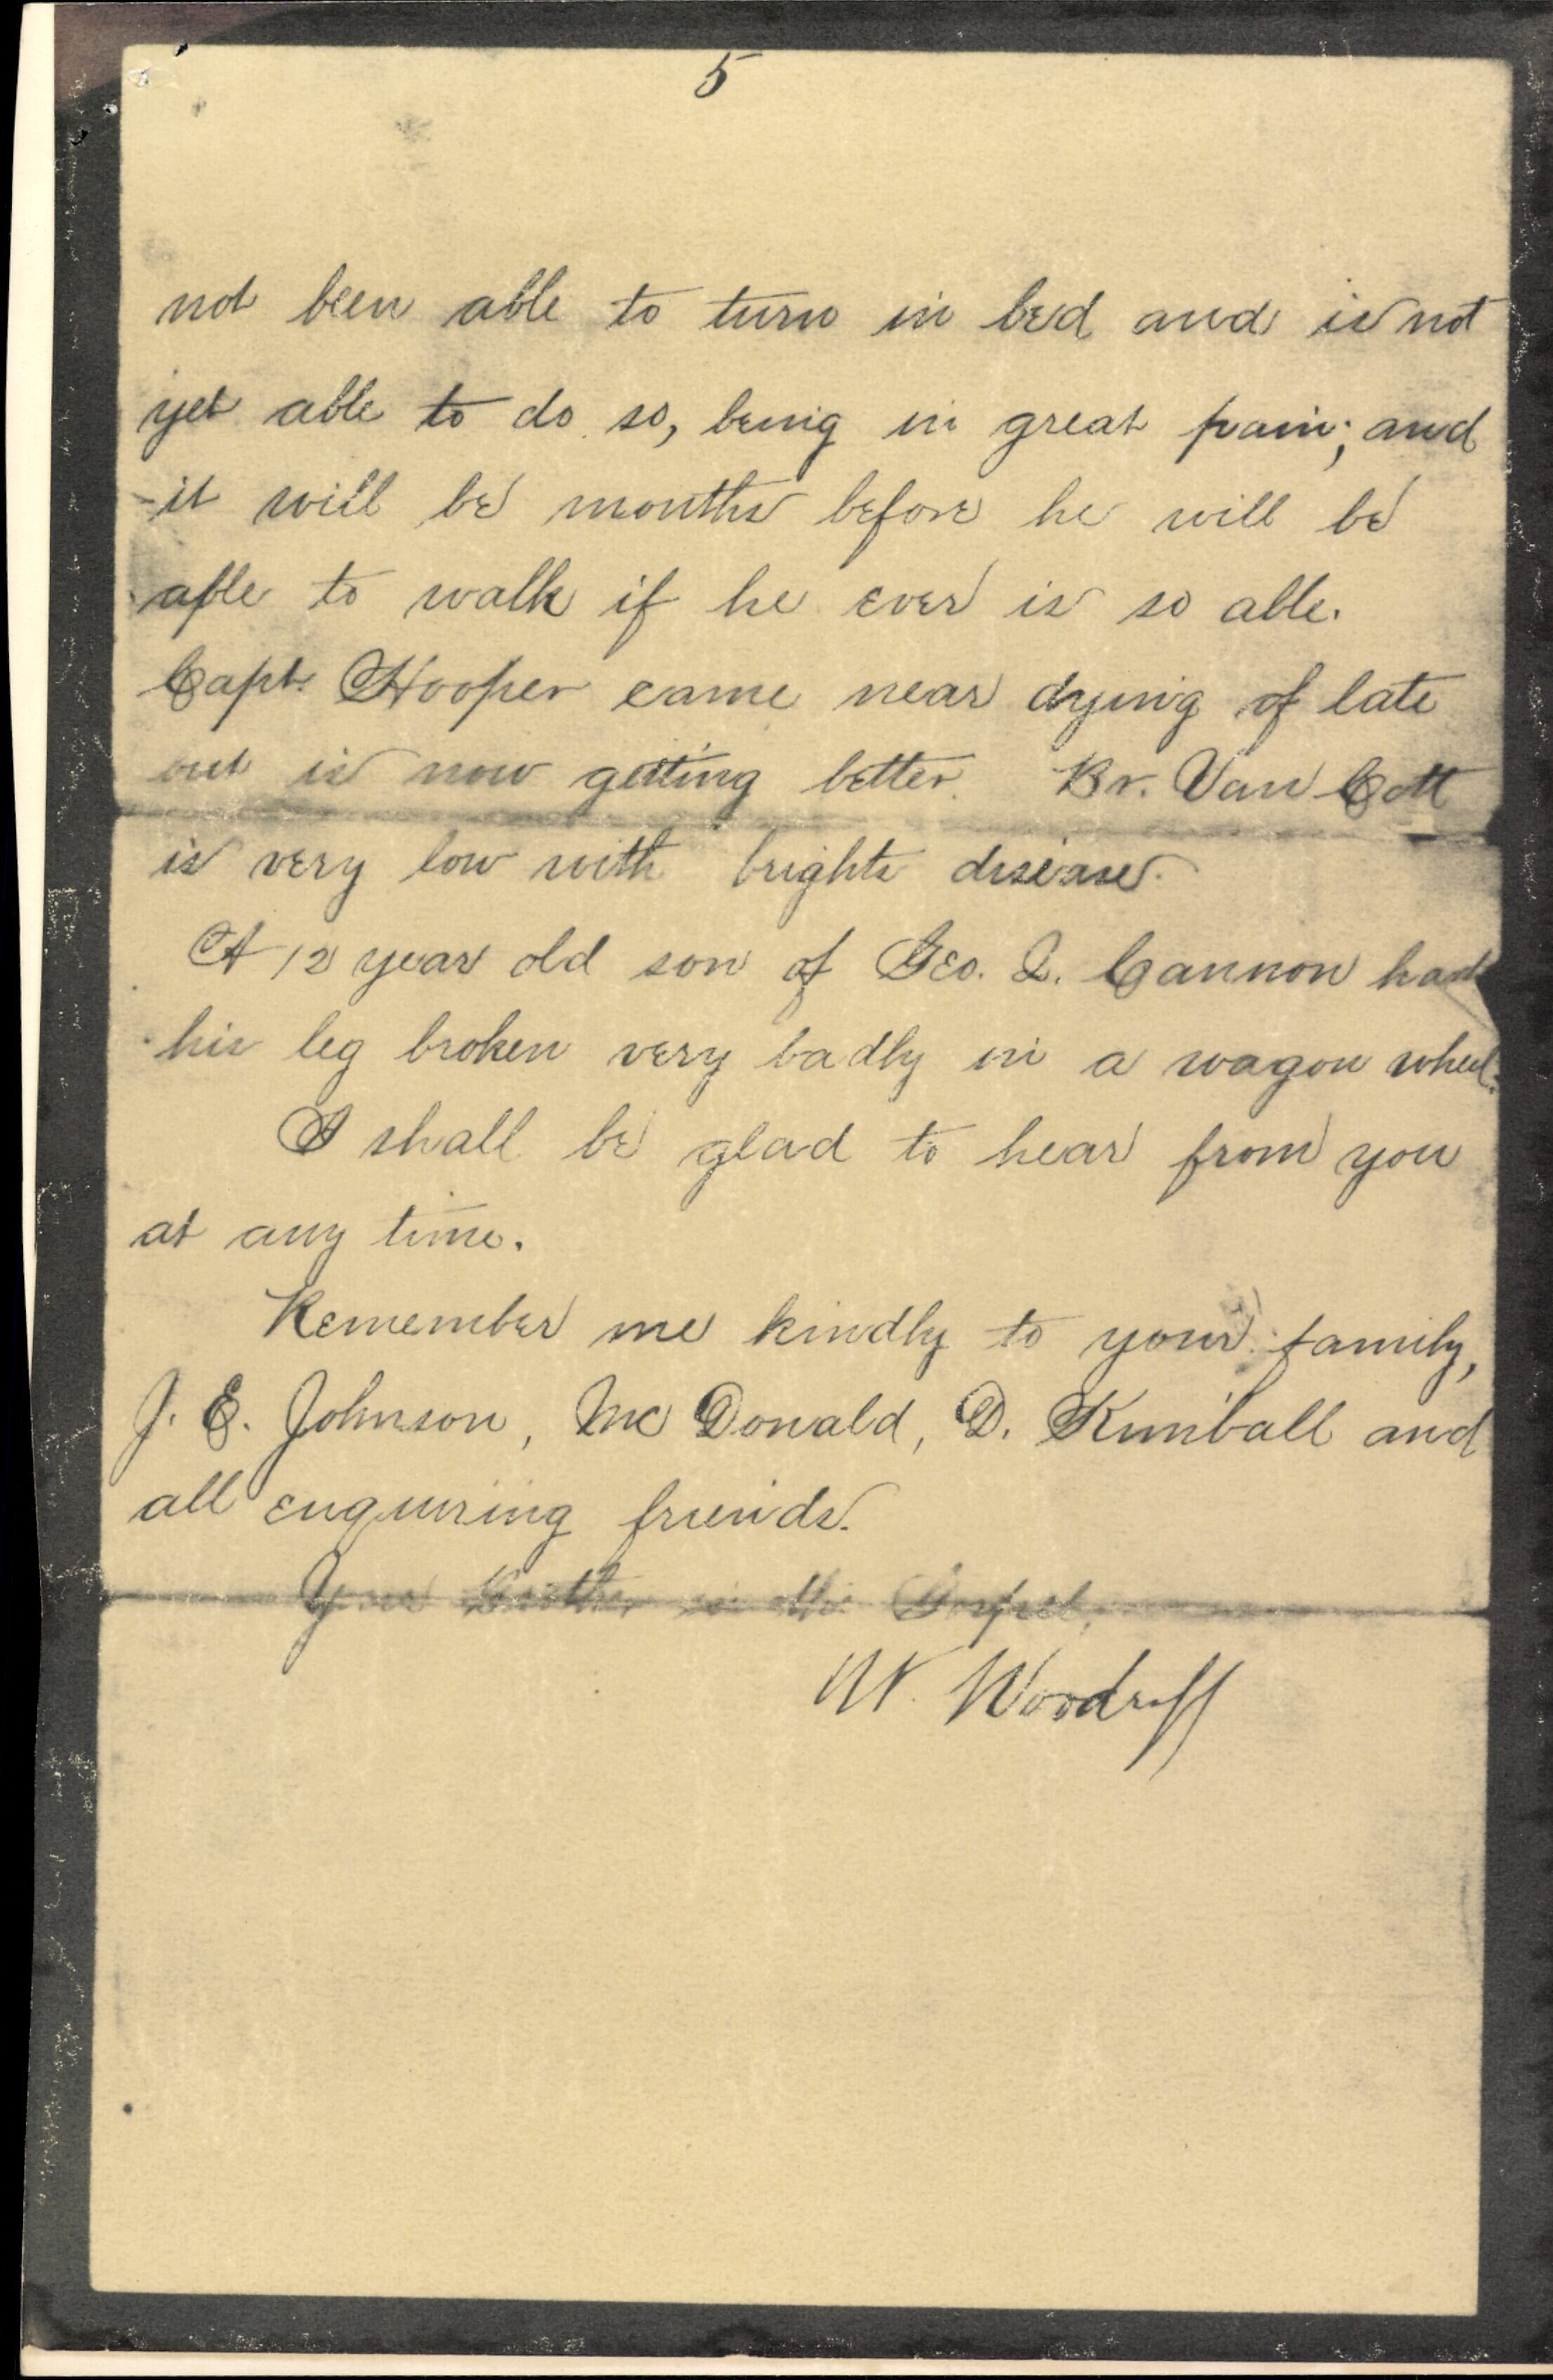 5
not been able to turn in bed and is not
yet able to do so, being in great pain; and
it will be months before he will be
able to walk if he ever is so able.
Capt. Hooper came near dying of late
but is now getting better. Br. Van Cott
is very low with brights disease.
A 12 year old son of Geo. Q. Cannon had
his leg broken very badly in a wagon wheel.
I shall be glad to hear from you
at any time.
Remember me kindly to your family,
J. E. Johnson, Mc Donald, D. Kimball and
all enquiring friends.
Your Brother in the Gospel,
W. Woodruff